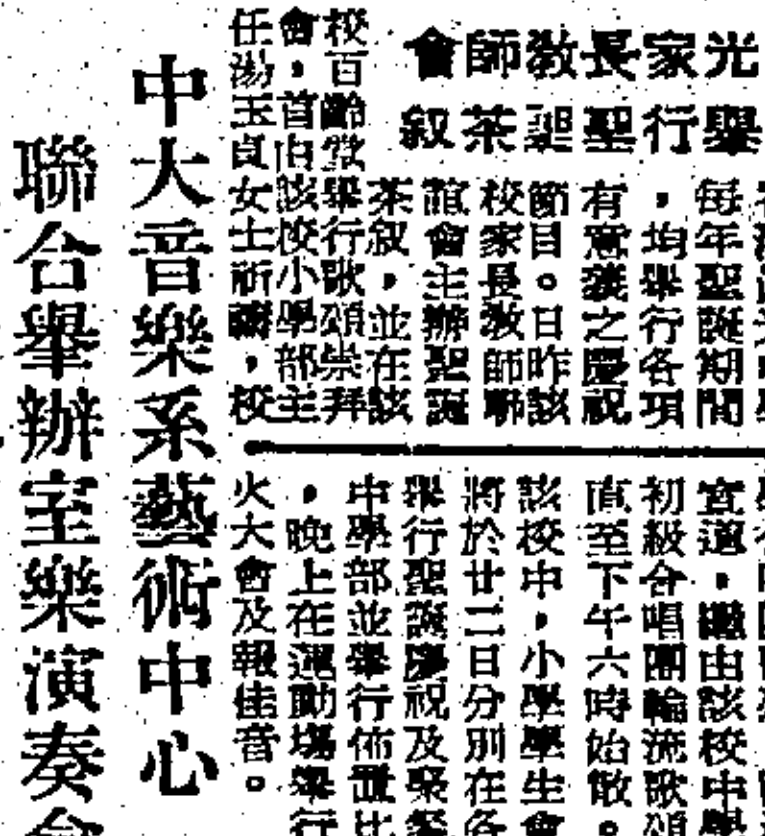 光家長教師會
舉行聖誕茶叙
每年聖誕期間
，均舉行各項
有意義之慶祝
節目。日昨該
校家長教師聯
誼會主辦聖誕
茶叙，並在該
校百齡堂舉行歌頌崇拜
會，首由該校小學部主
任湯玉貞女士祈禱，校
宣道，繼由該校中學
初級合唱團輪流歌頌
直至下午六時始散。
該校中，小學學生會
將於廿二日分別在各
舉行聖誕慶祝及聚餐
中學部並舉行佈置比
，晚上在運動場舉行
火大會及報佳音。
中大音樂系藝術中心
聯合舉辦室樂演奏會